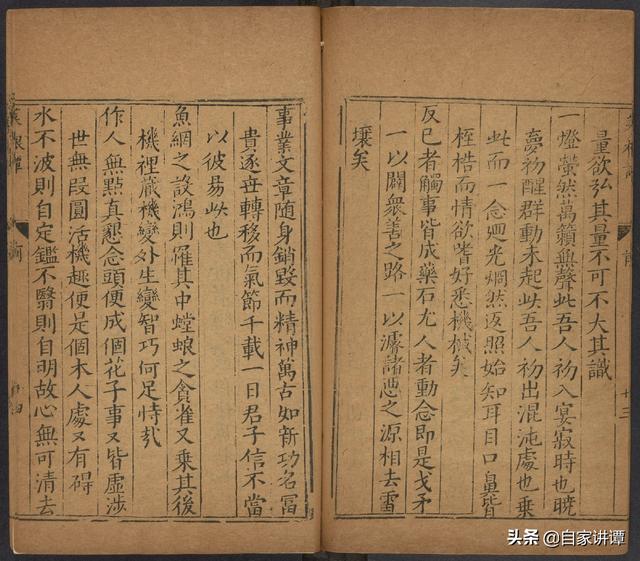 量欲弘其量不可不大其識
一燈螢然萬籟無聲此吾人初入宴寂時也曉
夢初醒群動未起此吾人初出混沌處也乗
此而一念廻光烱然返照始知耳目口鼻皆
桎梏而情欲嗜好悉機械矣
反已者觸事皆成藥石尤人者動念即是戈矛
一以闢衆善之路一以濬諸惡之源相去霄
壤矣
十三
事業文章隨身銷毀而精神萬古如新功名冨
貴逐世轉移而氣節千載一日君子信不當
以彼易此也
魚網之設鴻則罹其中螳蜋之貪雀又乘其後
機裡藏機變外生變智巧何足恃㢤
作人無點真懇念頭便成個花子事又皆虛涉
世無段圓活機趣便是個木人處又有碍
水不波則自定鑑不翳則自明故心無可清去
頭条 @自家讲谭